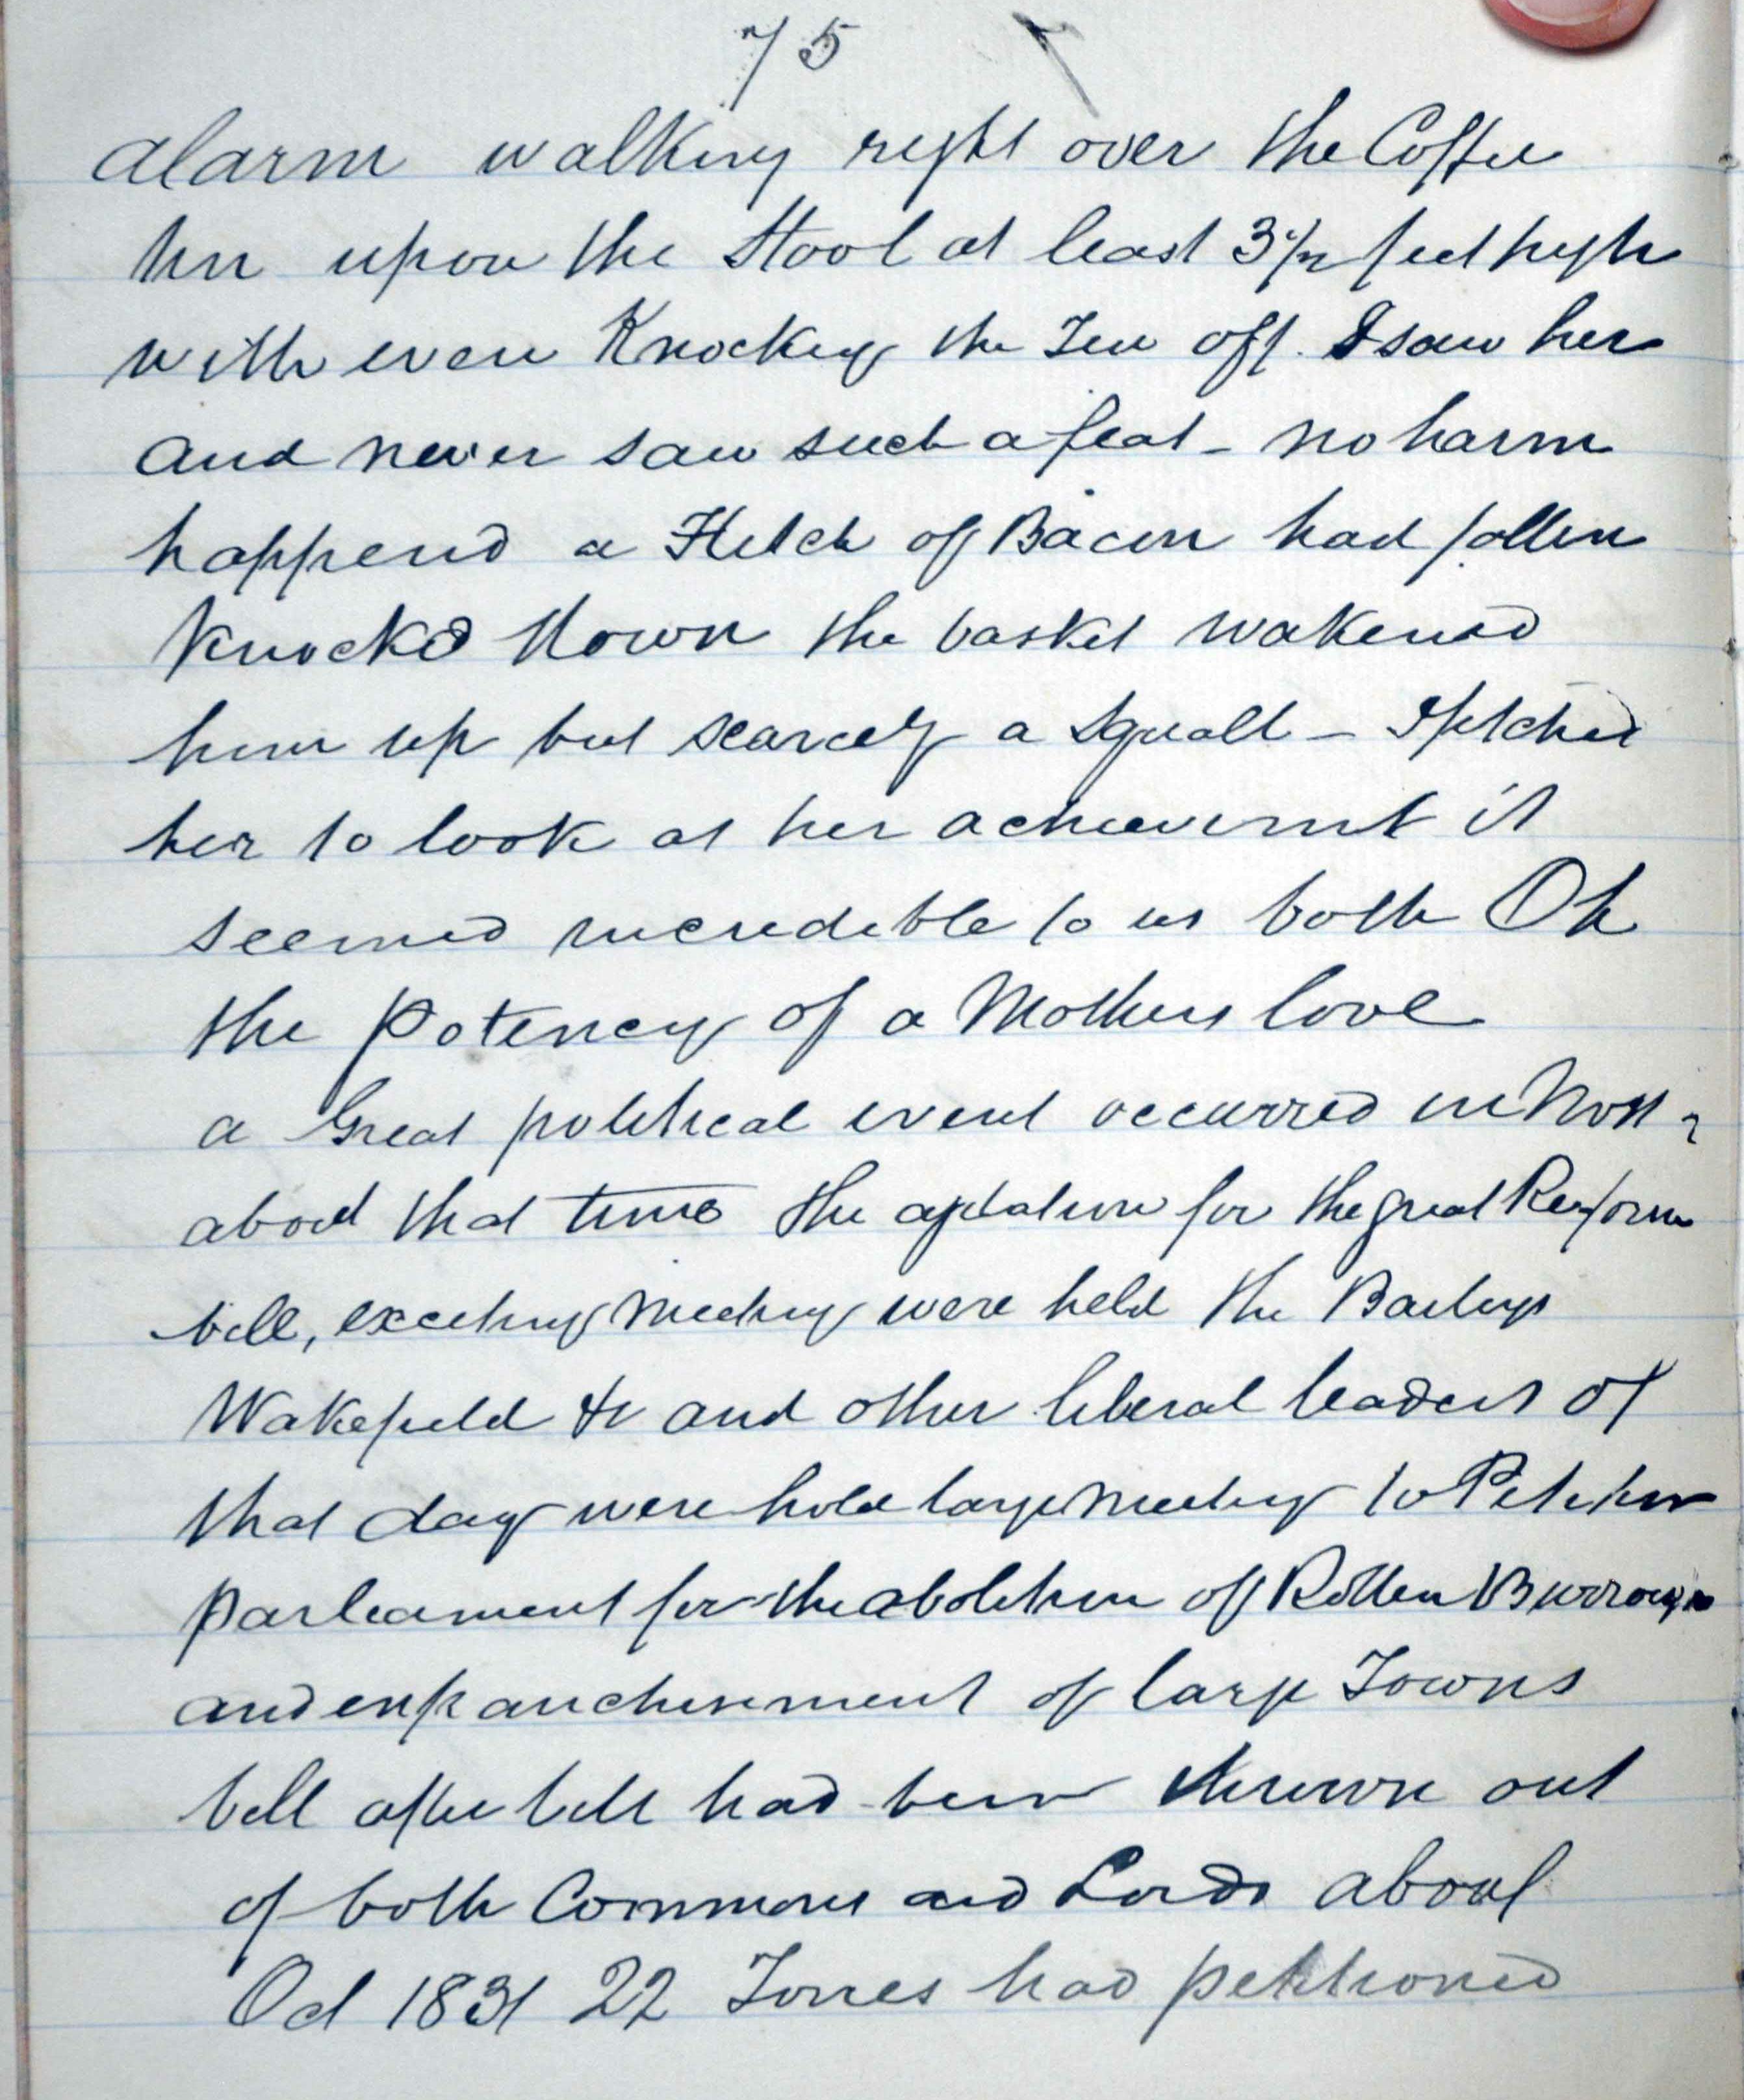 75
alarm walking right over the Coffee
tin upon the Stool at least 3 1/2 feet high
with even Knocking the Tin off. I saw her
and never saw such a feat - no harm
happend a Flitch of Bacon had fallen
Knockd down the basket wakened
him up but scarcely a squall - I fetched
her to look at her achievemnt it
seemed incredible to us both Oh
the Potency of a Mothers love
a Great political event occurred in Nott
about that time the agitation for the great Reform
bill, exciting meeting were held the Baileys
Wakefield &c and other liberal leaders of
that day were hold large meeting to Petition
Parleament for the abolition of Rotten Burroughs
and enfranchisement of large Towns
bill after bill had been thrown out
of both Commons and Lords about
Oct 1831 22 Tories had petitioned